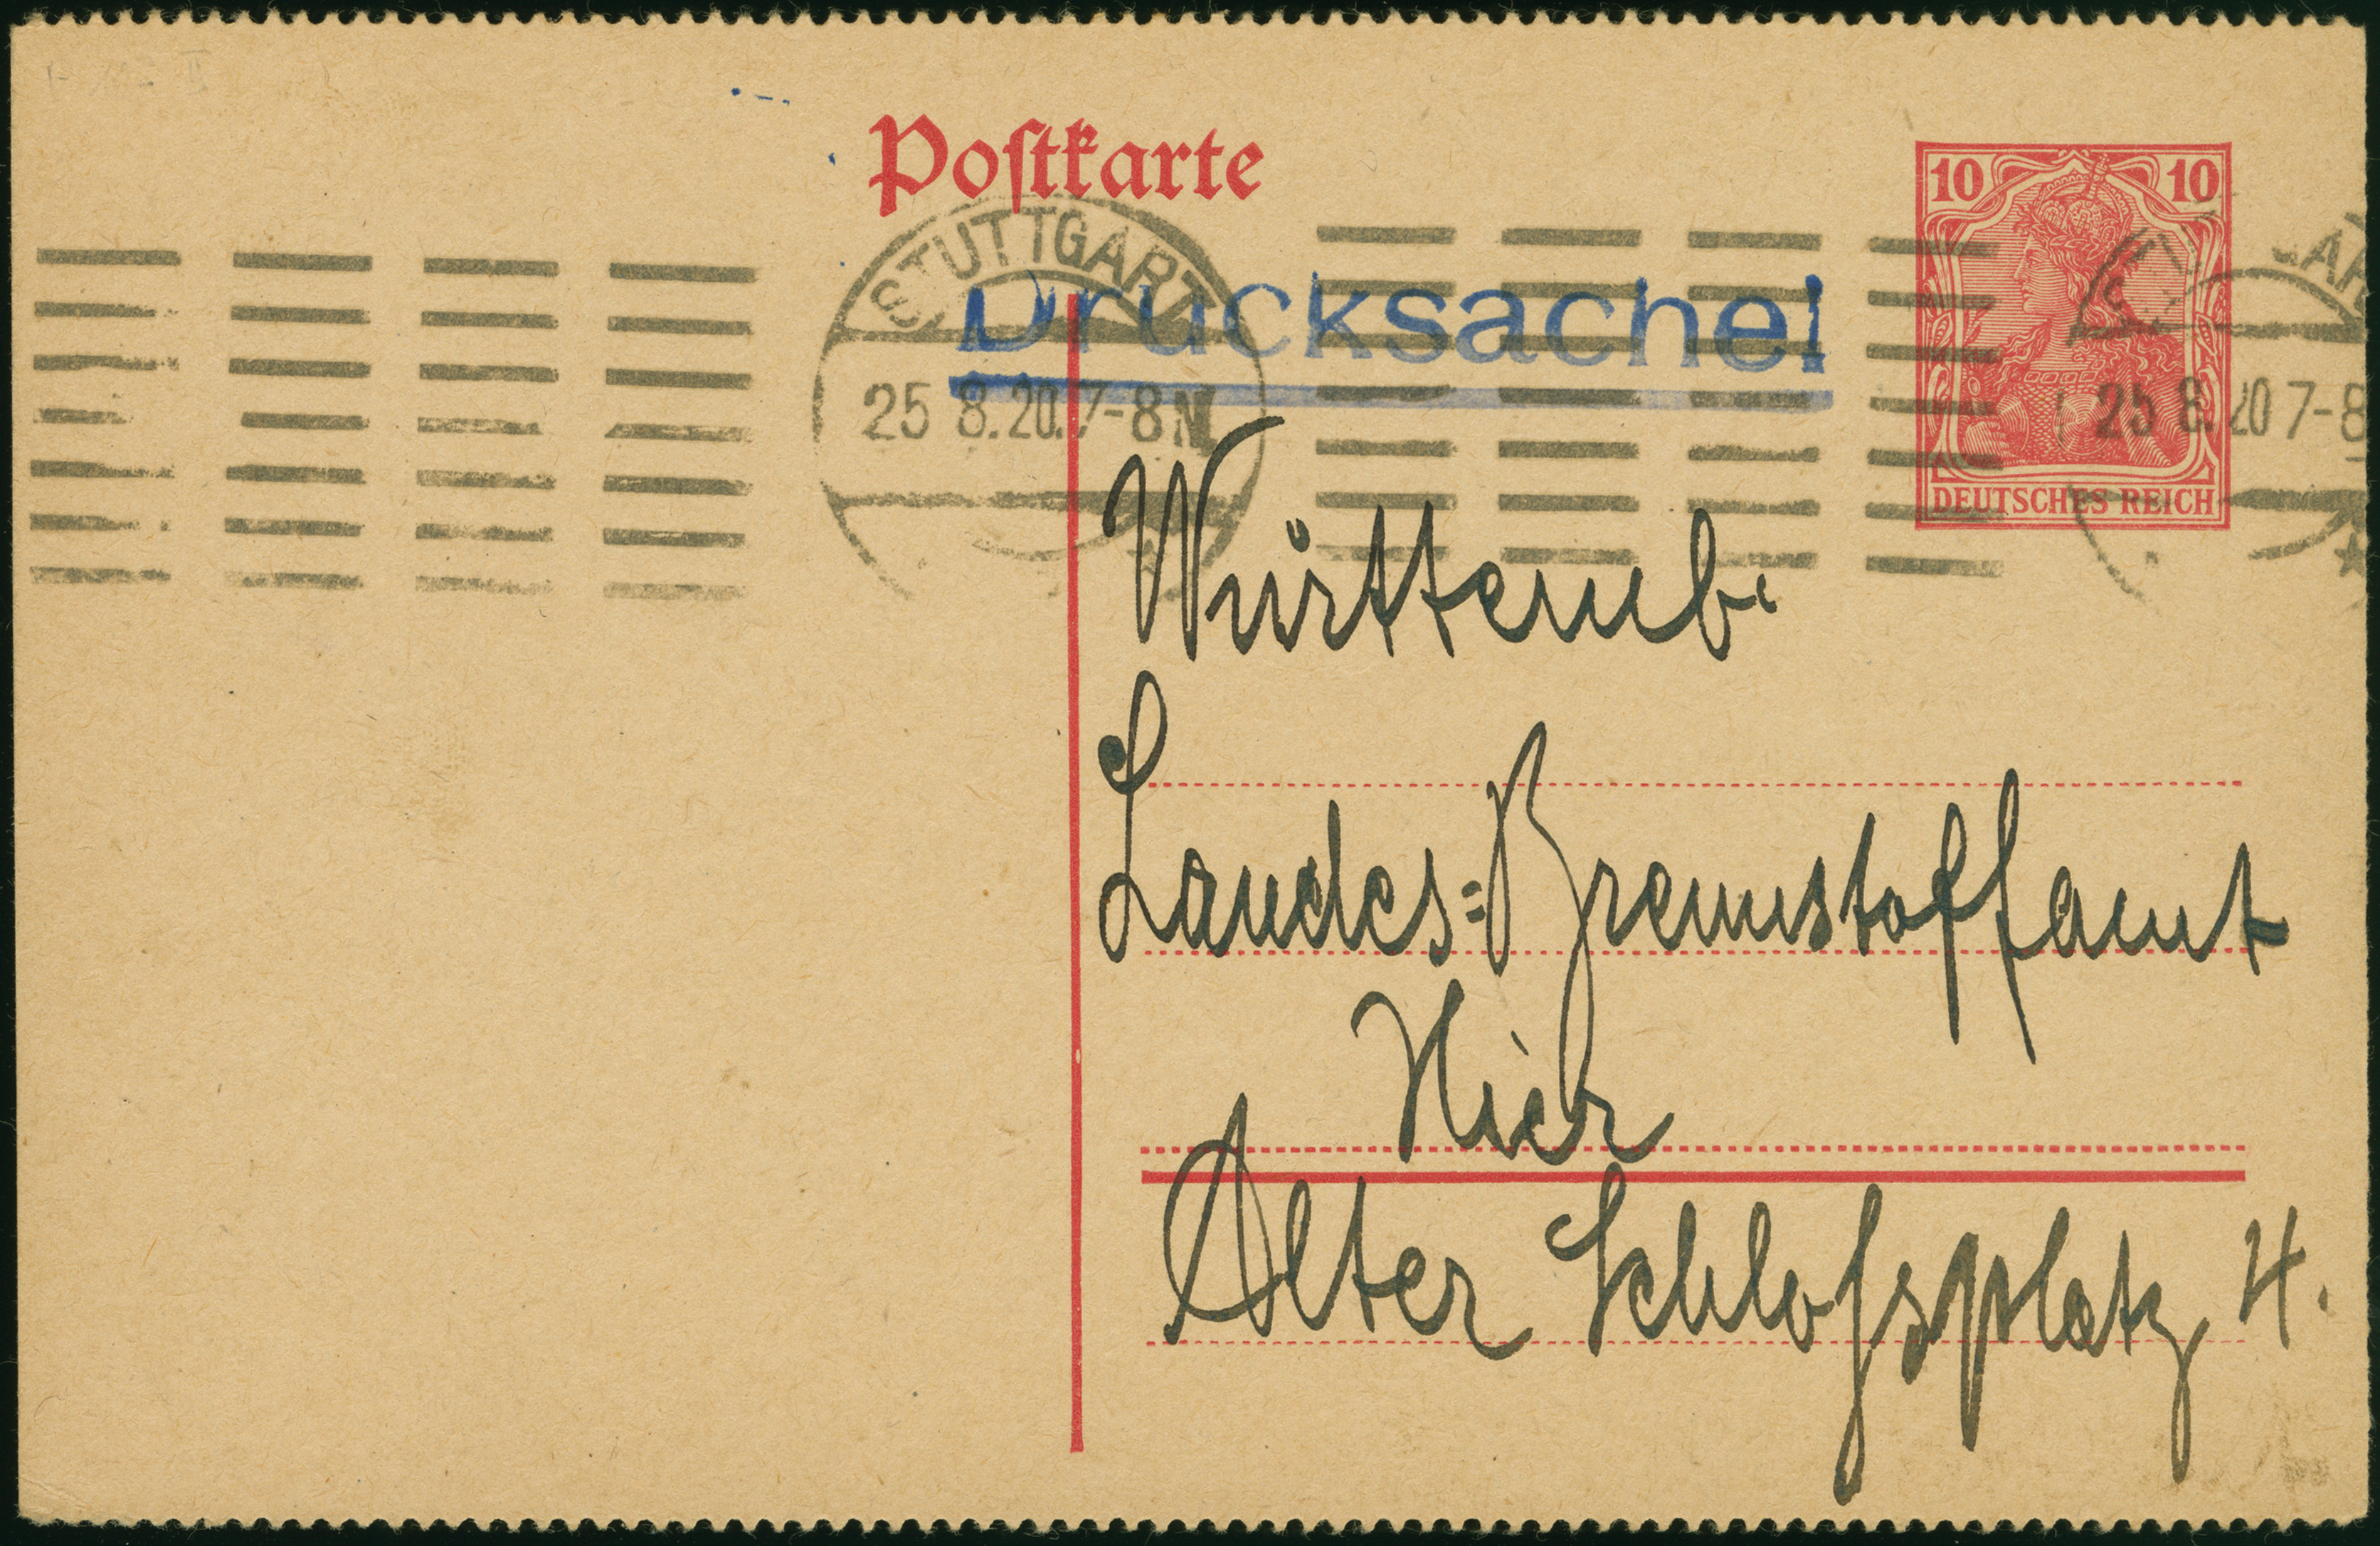 Postkarte
10 10
DEUTSCHES REICH
STUTTGART
25 8.20. 7-8 N
25 8.20 7-8
Drucksache!
Württemb.
Landes=Brennstoffamt
Hier
Alter Schloſsplatz 4.